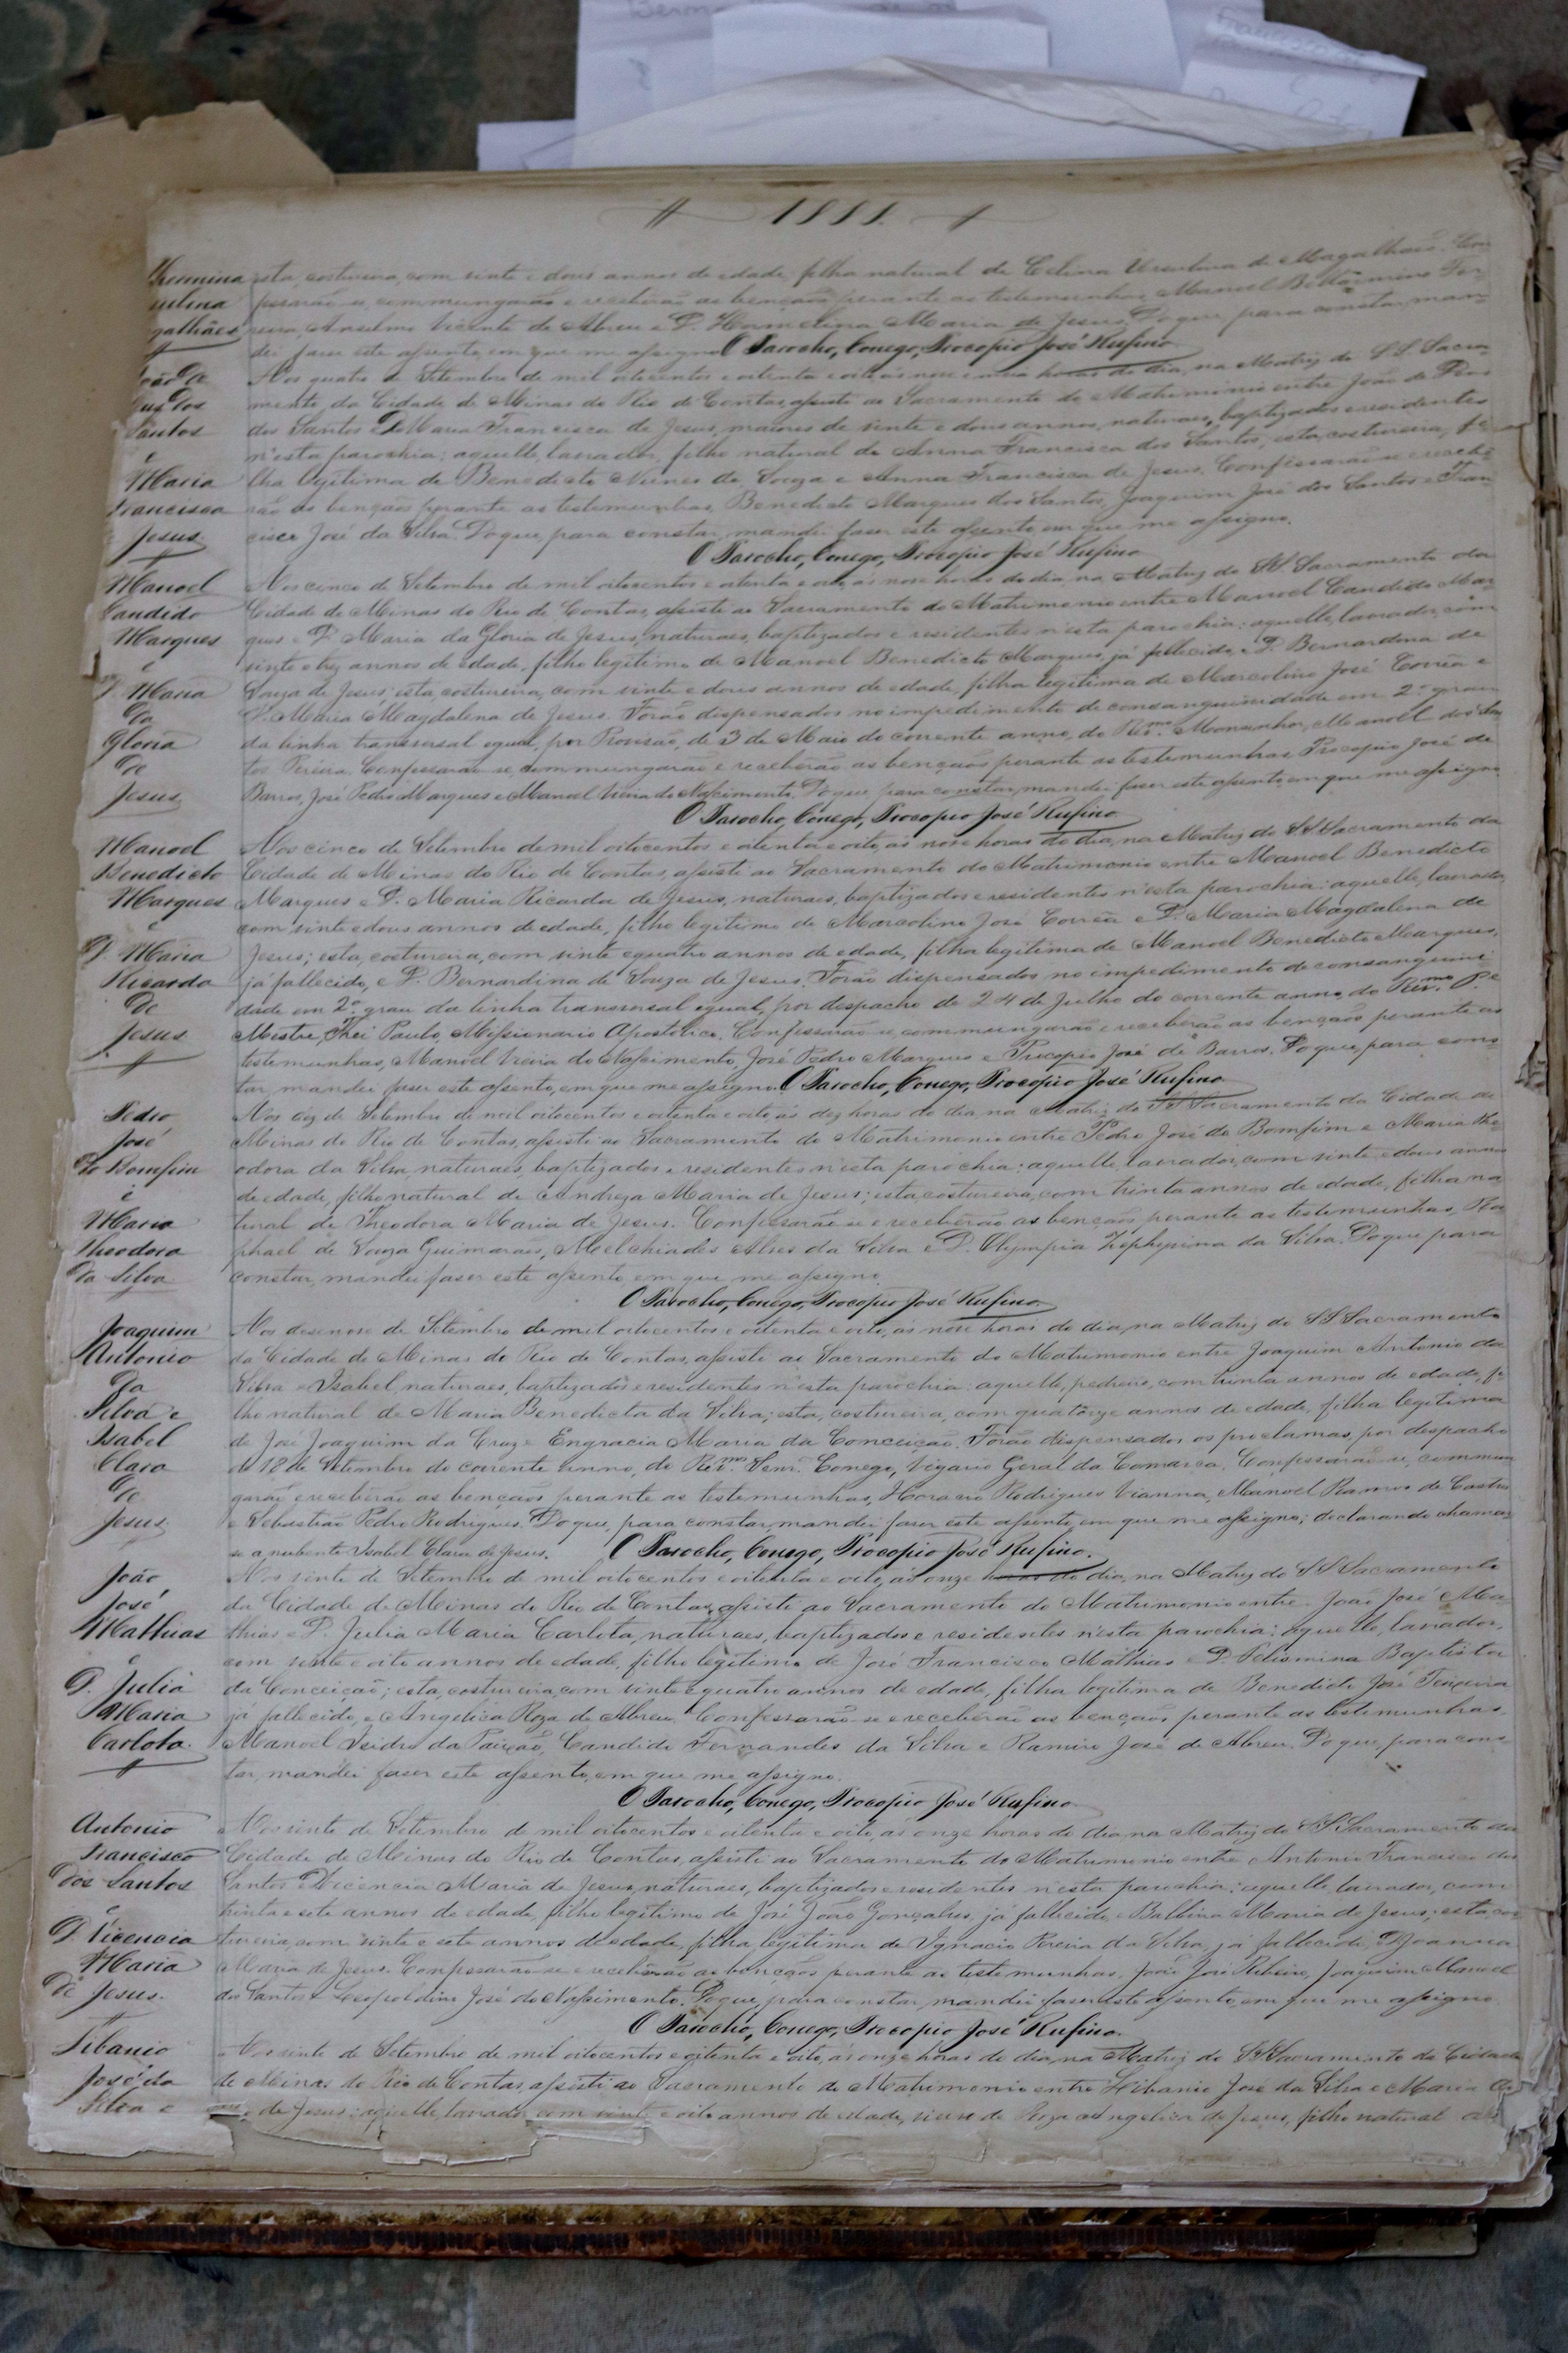 1888.
Hermina esta, costureira, com vinte e dous annos de edade, filha natural de Celina Ursulina de Magalhães. Con-
sulina fessarão-se, commungarão e receberão as bençãos perante as testemunhas, Manoel Bellarmino Fer-
galhães reira, Anselmo Vicente de Abreu e D. Hamelina Maria de Jesus. Do que, para constar, man-
dei faser este assento, em que me assigno. O Parocho, Conego, Procopio José Rufino.
João de Aos quatro de Setembro de mil oitocentos e oitenta e oito, ás nove e meia horas do dia, na Matriz do SS. Sacra-
dos mento da Cidade de Minas do Rio de Contas, assisti ao Sacramento do Matrimonio entre João de
Santos dos Santos e D. Maria Francisca de Jesus, maiores de vinte e dous annos, naturaes, baptizados e residentes
e n'esta parochia: aquelle, lavrador, filho natural de Anna Francisca dos Santos; esta, costureira, fi-
Maria lha legitima de Benedicto Nunes de Souza e Anna Francisca de Jesus. Confessarão-se e recebe-
Francisca rão as bençãos perante as testemunhas, Benedicto Marques dos Santos, Joaquim José dos Santos e Fran-
Jesus. cisco José da Silva. Do que, para constar, mandei faser este assento em que me assigno.
O Parocho, Conego, Procopio José Rufino.
Manoel Aos cinco de Setembro de mil oitocentos e oitenta e oito, ás nove horas do dia, na Matriz do SS. Sacramento da
Candido Cidade de Minas do Rio de Contas, assisti ao Sacramento do Matrimonio entre Manoel Candido Mar-
Marques ques e D. Maria da Gloria de Jesus, naturaes, baptizados e residentes n'esta parochia: aquelle, lavrador, com
e vinte e trez annos de edade, filho legitimo de Manoel Benedicto Marques, já fallecido, e D. Bernardina de
D. Maria Souza de Jesus; esta, costureira, com vinte e dous annos de edade, filha legitima de Marcolino José Corrêa e
da D. Maria Magdalena de Jesus. Forão dispensados no impedimento de consanguinidade em 2.º grau
Gloria da linha transversal egual, por Provisão, de 3 de Maio do corrente anno, do Rev.mo Monsenhor, Manoel dos San-
de tos Pereira. Confessarão-se, commungarão e receberão as bençãos perante as testemunhas, Procopio José de
Jesus Barros, José Pedro Marques e Manoel Vieira do Nascimento. Do que, para constar, mandei faser este assento, em que me assigno.
O Parocho, Conego, Procopio José Rufino.
Manoel Aos cinco de Setembro de mil oitocentos e oitenta e oito, ás nove horas do dia, na Matriz do SS. Sacramento da
Benedicto Cidade de Minas do Rio de Contas, assisti ao Sacramento do Matrimonio entre Manoel Benedicto
Marques Marques e D. Maria Ricarda de Jesus, naturaes, baptizados e residentes n'esta parochia: aquelle, lavrador,
e com vinte e dous annos de edade, filho legitimo de Marcolino José Corrêa e D. Maria Magdalena de
D. Maria Jesus; esta, costureira, com vinte e quatro annos de edade, filha legitima de Manoel Benedicto Marques,
Ricarda já fallecido, e D. Bernardina de Souza de Jesus. Forão dispensados no impedimento de consanguini-
de dade em 2.º grau da linha transversal egual, por despacho de 24 de Julho do corrente anno, do Rev.mo P.e
Jesus Mestre, Frei Paulo, Missionario Apostolico. Confessarão-se, commungarão e receberão as bençãos perante as
testemunhas, Manoel Vieira do Nascimento, José Pedro Marques e Procopio José de Barros. Do que, para cons-
tar, mandei faser este assento, em que me assigno. O Parocho, Conego, Procopio José Rufino.
Pedro Aos dez de Setembro de mil oitocentos e oitenta e oito, ás dez horas do dia, na Matriz do SS. Sacramento da Cidade de
José Minas do Rio de Contas, assisti ao Sacramento do Matrimonio entre Pedro José do Bomfim e Maria The-
do Bomfim odora da Silva, naturaes, baptizados e residentes n'esta parochia: aquelle, lavrador, com vinte e dous annos
e de edade, filho natural de Andreza Maria de Jesus; esta, costureira, com trinta annos de edade, filha na-
Maria tural de Theodora Maria de Jesus. Confessarão-se e receberão as bençãos perante as testemunhas, Ra-
Theodora phael de Souza Guimarães, Melchiades Alves da Silva e D. Olympia Zephyrina da Silva. Do que para
da Silva constar, mandei faser este assento em que me assigno.
O Parocho, Conego, Procopio José Rufino.
Joaquim Aos desenove de Setembro de mil oitocentos e oitenta e oito, ás nove horas do dia, na Matriz do SS Sacramento
Antonio da Cidade de Minas do Rio de Contas, assisti ao Sacramento do Matrimonio entre Joaquim Antonio da
da Silva e Isabel, naturaes, baptizados e residentes n'esta parochia: aquelle, pedreiro, com trinta annos de edade, fi-
Silva e lho natural de Maria Benedicta da Silva; esta, costureira, com quatorze annos de edade, filha legitima
Isabel de José Joaquim da Cruz e Engracia Maria da Conceição. Forão dispensados os proclamas, por despacho
Clara de 18 de Setembro do corrente anno, do Rev.mo Senr. Conego, Vigario Geral da Comarca. Confessarão-se, commun-
de garão e receberão as bençãos perante as testemunhas, Horacio Rodrigues Vianna, Manoel Ramos de Castro
Jesus. e Sebastião Pedro Rodrigues. Do que, para constar, mandei faser este assento, em que me assigno; declarando chamar-
se a nubente Isabel Clara de Jesus. O Parocho, Conego, Procopio José Rufino.
João Aos vinte de Setembro de mil oitocentos e oitenta e oito, ás onze horas do dia, na Matriz do SS Sacramento
José da Cidade de Minas do Rio de Contas, assisti ao Sacramento do Matrimonio entre João José Ma-
Mathias thias e D. Julia Maria Carlota, naturaes, baptizados e residentes n'esta parochia: aquelle, lavrador,
e com vinte e oito annos de edade, filho legitimo de José Francisco Mathias e D. Felismina Baptista
D. Julia da Conceição; esta, costureira, com vinte e quatro annos de edade, filha legitima de Benedicto José Teixeira
Maria já fallecido, e Angelica Roza de Abreu. Confessarão-se e receberão as bençãos perante as testemunhas,
Carlota. Manoel Isidro da Paixão, Candido Fernandes da Silva e Ramiro José de Abreu. Do que, para cons-
tar, mandei faser este assento, em que me assigno.
O Parocho, Conego, Procopio José Rufino.
Antonio Aos vinte de Setembro de mil oitocentos e oitenta e oito, ás onze horas do dia, na Matriz do SS Sacramento da
Francisco Cidade de Minas do Rio de Contas, assisti ao Sacramento do Matrimonio entre Antonio Francisco dos
dos Santos Santos e D. Vicencia Maria de Jesus, naturaes, baptizados e residentes n'esta parochia: aquelle lavrador, com
e trinta e sete annos de edade, filho legitimo de José João Gonçalves, já fallecido, e Balbina Maria de Jesus; esta, cos-
D. Vicencia tureira, com vinte e sete annos de edade, filha legitima de Ignacio Pereira da Silva, já fallecido, e D. Joanna
Maria Maria de Jesus. Confessarão-se e receberão as bençãos perante as testemunhas, José Ribeiro, Joaquim Manoel
de Jesus. dos Santos e Leopoldino José do Nascimento. Do que, para constar, mandei faser este assento em que me assigno.
O Parocho, Conego, Procopio José Rufino.
Libanio Aos vinte de Setembro de mil oitocentos e oitenta e oito, ás onze horas do dia, na Matriz do SS Sacramento da Cidade
José da de Minas do Rio de Contas, assisti ao Sacramento do Matrimonio entre Libanio José da Silva e Maria
Silva e de Jesus: aquelle, lavrador, com vinte e oito annos de edade, viuvo de Roza Angelica de Jesus, filho natural